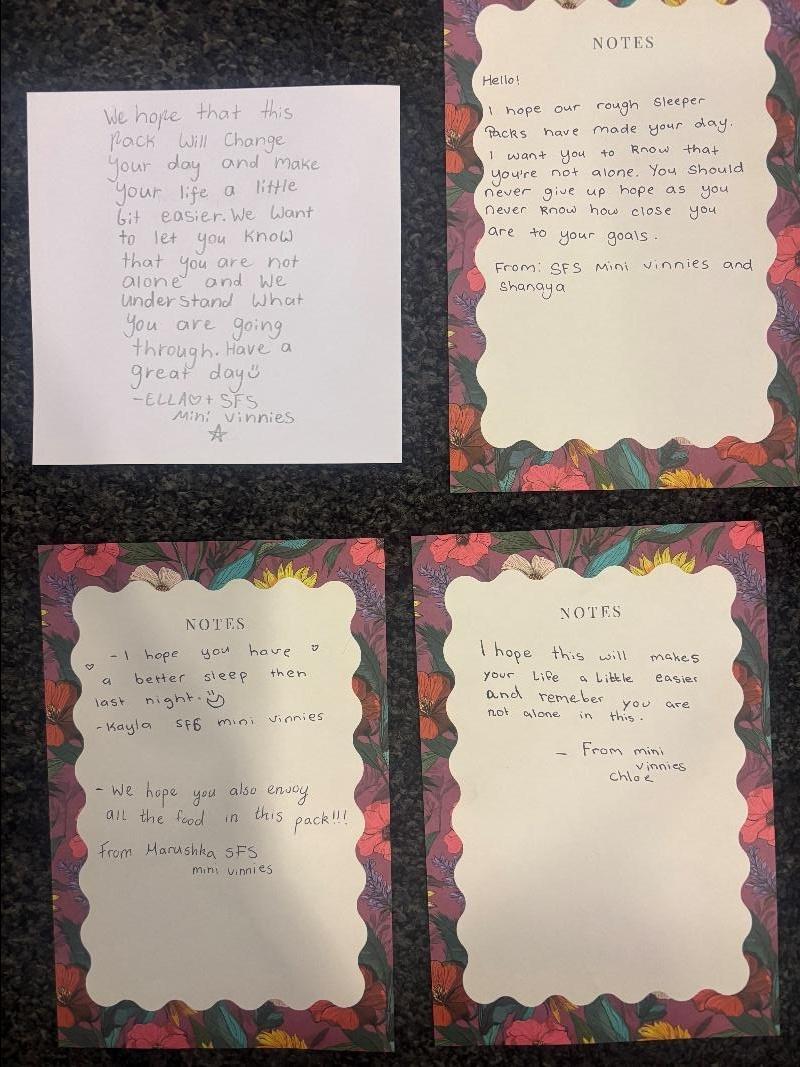 We hope that this
pack will change
your day and make
your life a little
bit easier. We want
to let you know
that you are not
alone and we
understand what
you are going
through. Have a
great day☺
-ELLA♡+ SFS
Mini vinnies
☆
NOTES
Hello!
I hope our rough sleeper
packs have made your day.
I want you to know that
you're not alone. You should
never give up hope as you
never know how close you
are to your goals.
From: SFS Mini vinnies and
Shanaya
NOTES
- I hope you have ♡
♡ a better sleep then
last night. ☺
- Kayla SFS mini vinnies
- We hope you also enjoy
all the food in this pack!!!
From Marushka SFS
mini vinnies
NOTES
I hope this will makes
your life a little easier
and remeber you are
not alone in this.
- From mini
vinnies
Chloe